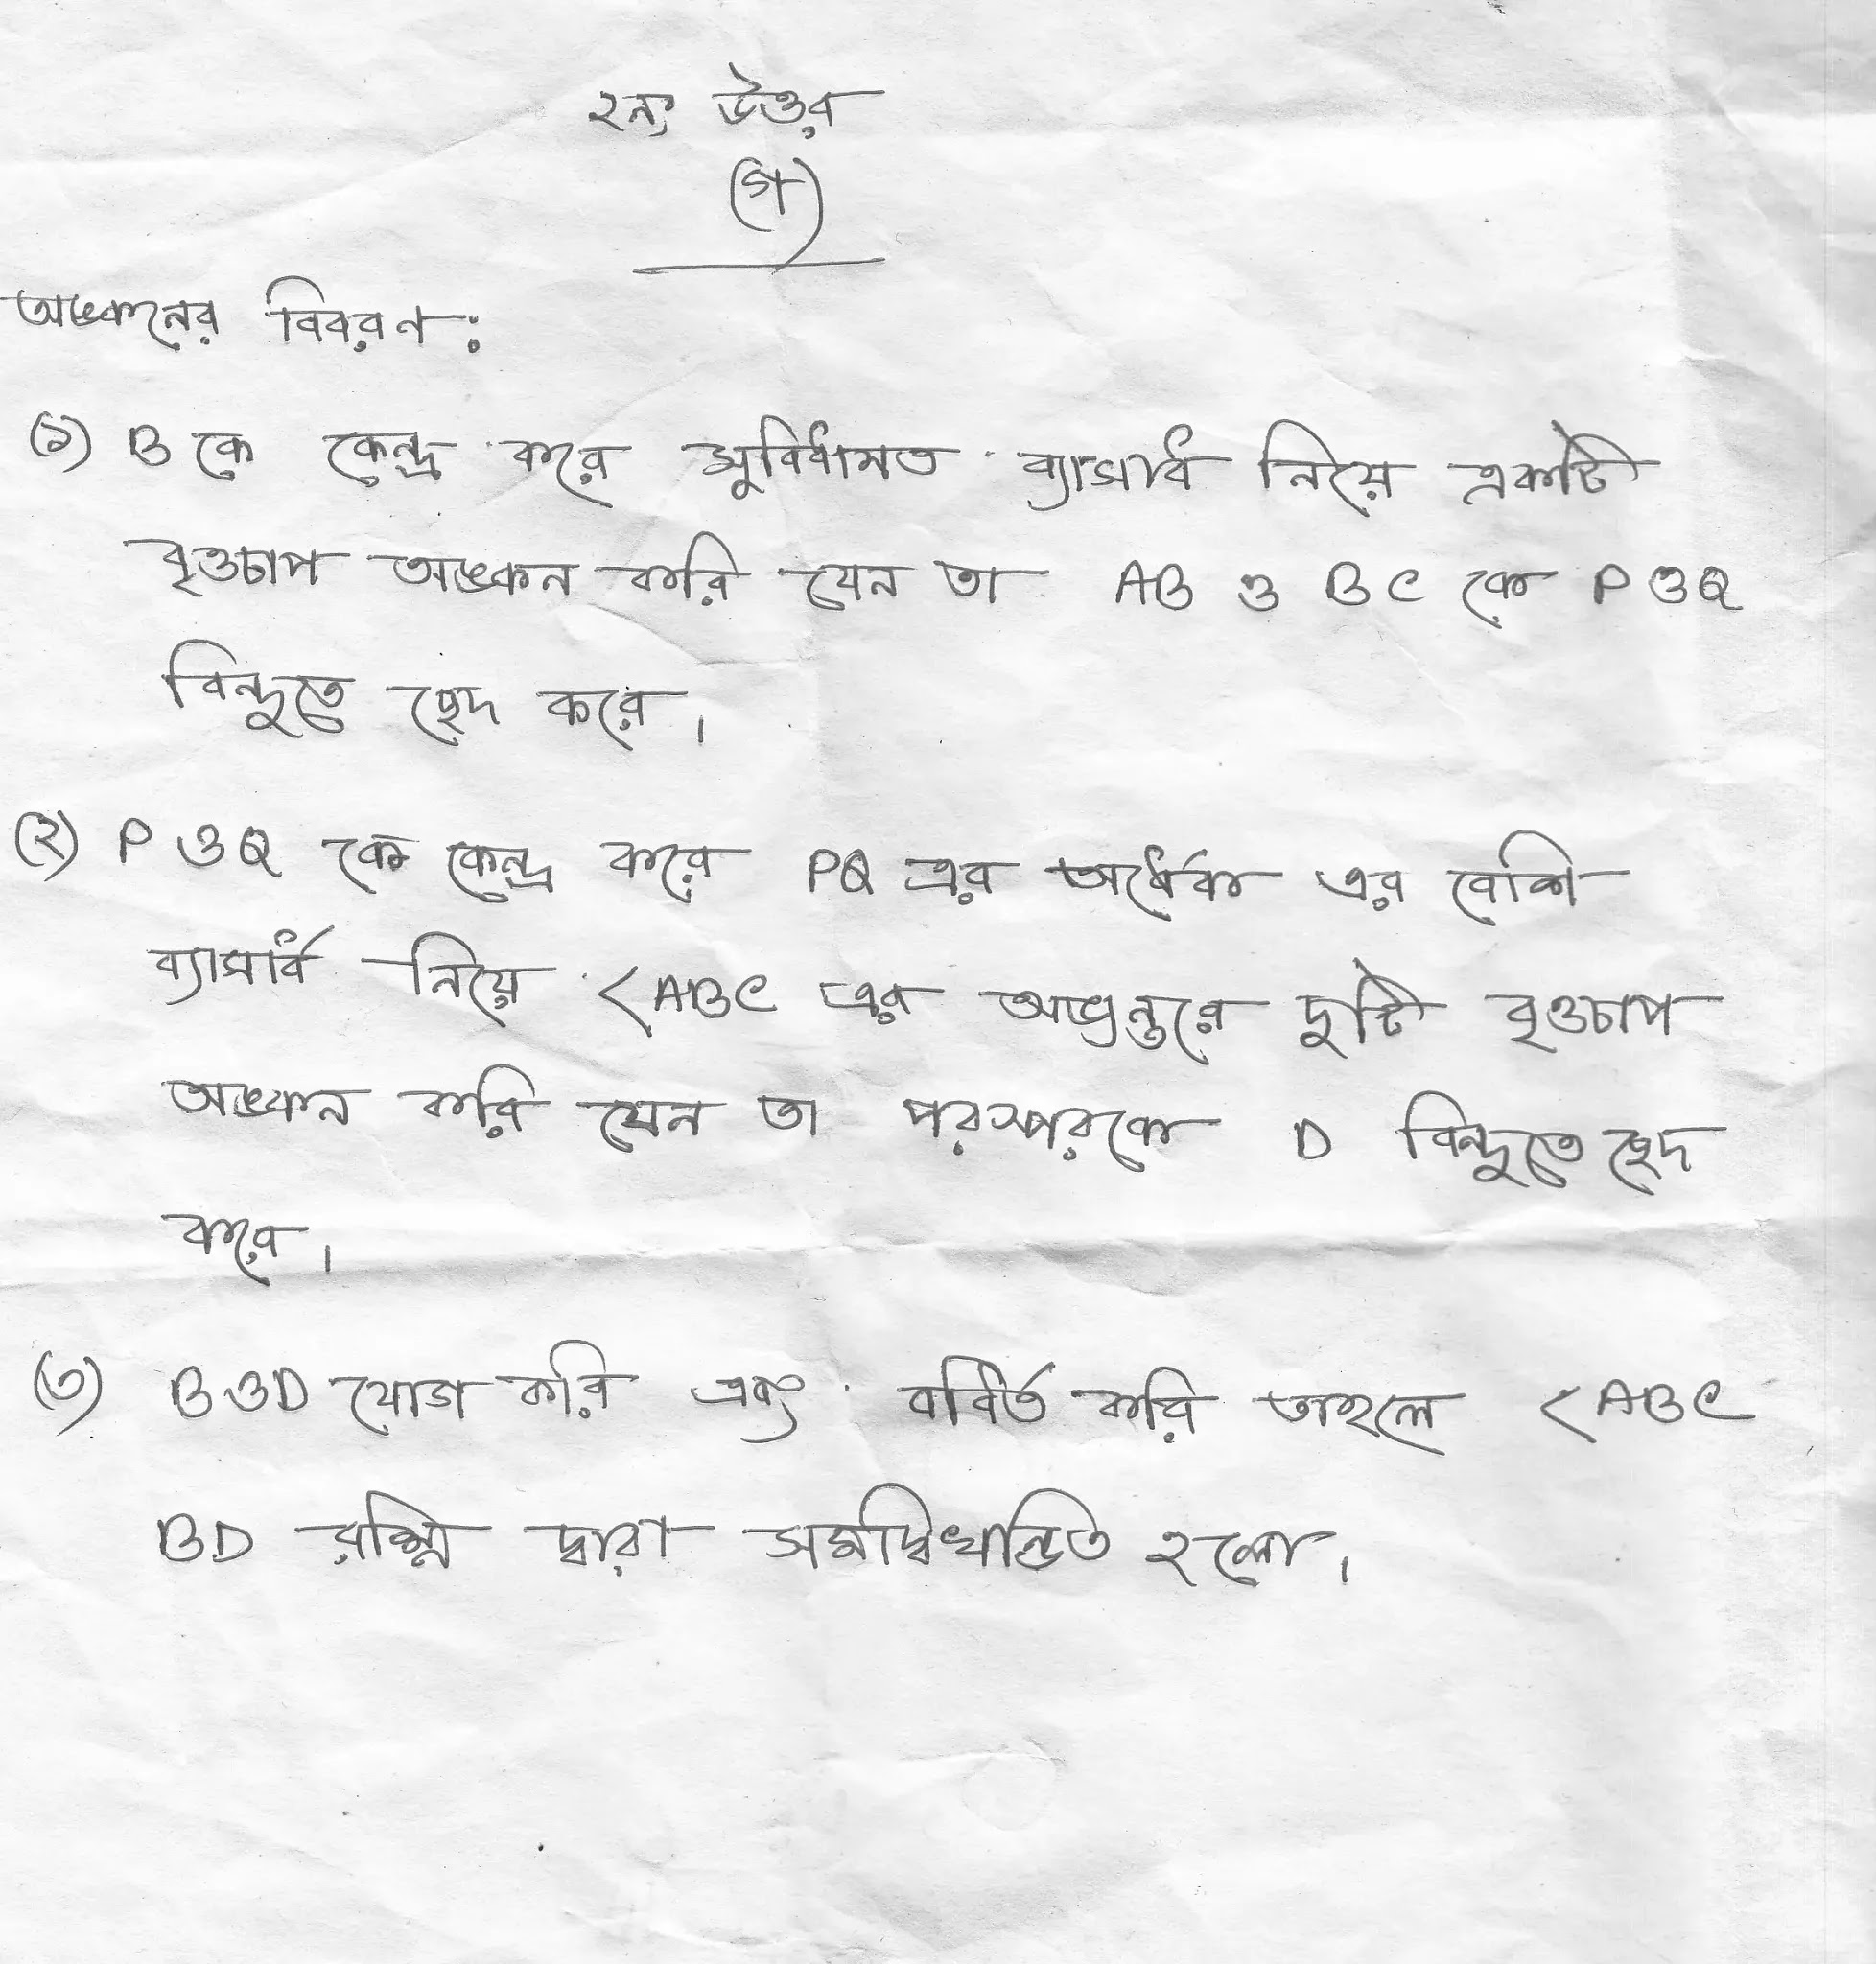 ২নং উত্তর
(গ)
অঙ্কনের বিবরণ:
(১) B কে কেন্দ্র করে সুবিধামত ব্যাসার্ধ নিয়ে একটি
বৃত্তচাপ অঙ্কন করি যেন তা AB ও BC কে P ও Q
বিন্দুতে ছেদ করে।
(২) P ও Q কে কেন্দ্র করে PQ এর অর্ধেক এর বেশি
ব্যাসার্ধ নিয়ে <ABC এর অভ্যন্তরে দুটি বৃত্তচাপ
অঙ্কন করি যেন তা পরস্পরকে D বিন্দুতে ছেদ
করে।
(৩) B ও D যোগ করি এবং বর্ধিত করি তাহলে <ABC
BD রশ্মি দ্বারা সমদ্বিখন্ডিত হলো।